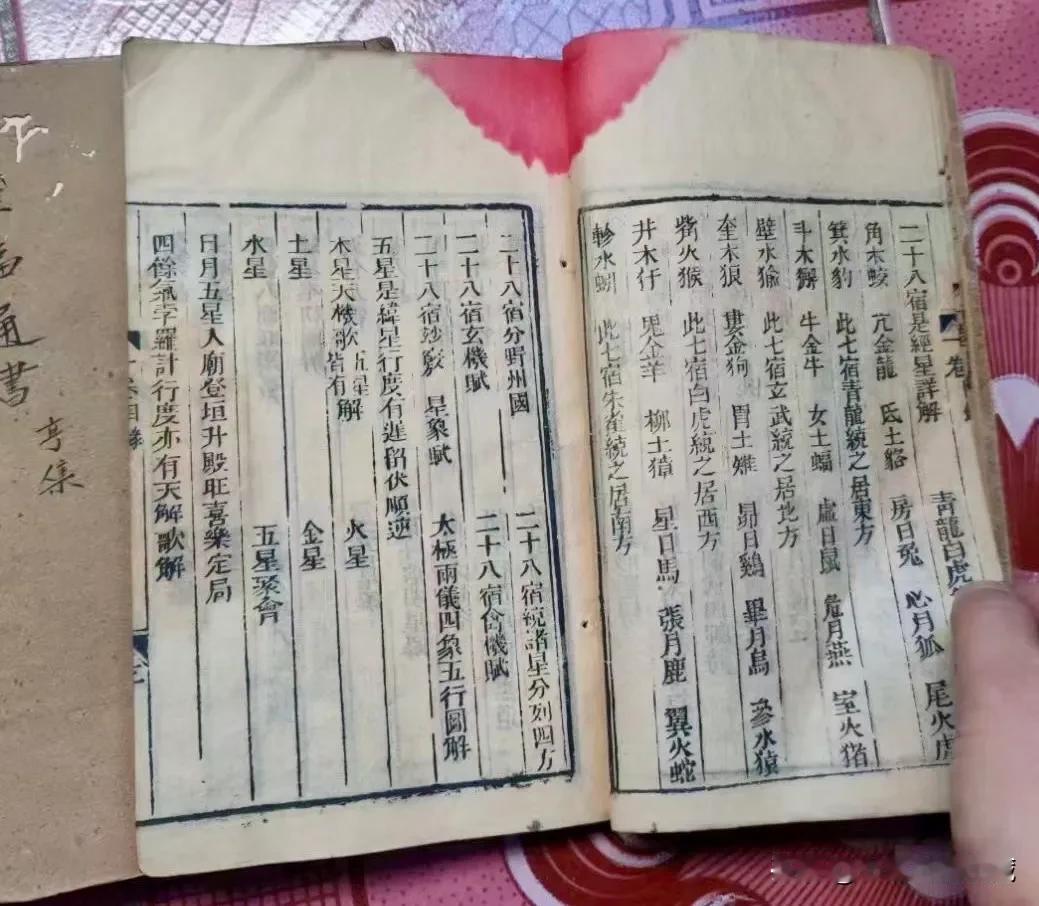 二十八宿是經星詳解　青龍白虎
角木蛟　亢金龍　氐土貉　房日兔　心月狐　尾火虎
箕水豹　此七宿青龍統之居東方
斗木獬　牛金牛　女土蝠　虛日鼠　危月燕　室火猪
壁水㺄　此七宿玄武統之居北方
奎木狼　婁金狗　胃土雉　昴日鷄　畢月烏　參水猿
觜火猴　此七宿白虎統之居西方
井木犴　鬼金羊　柳土獐　星日馬　張月鹿　翼火蛇
軫水蚓　此七宿朱雀統之居南方
二十八宿分野州國　二十八宿統諸星分列四方
二十八宿玄機賦　二十八宿禽機賦
二十八宿妙竅　星象賦　太極兩儀四象五行圖解
五星是緯星行度有遲留伏順逆
木星天機歌五星皆有解　火星
土星　金星
水星　五星聚會
日月五星入廟登垣升殿旺喜樂定局
四餘氣孛羅計行度亦有天解歌解
通書
亨集